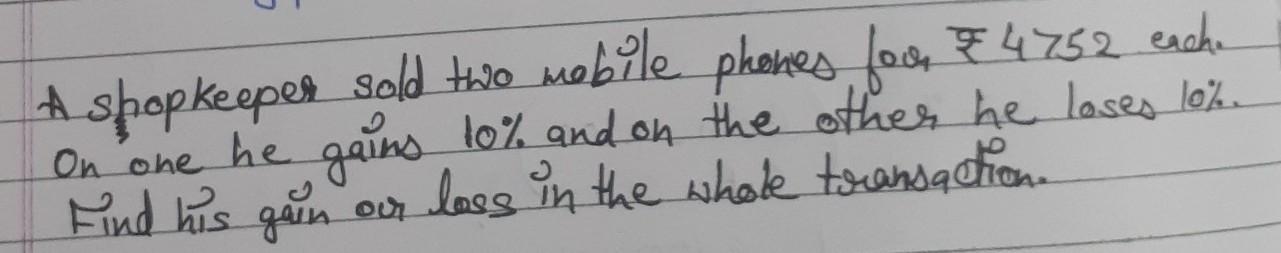 A shopkeeper sold two mobile phones for ₹ 4752 each.
On one he gains 10% and on the other he loses 10%.
Find his gain or loss in the whole transaction.